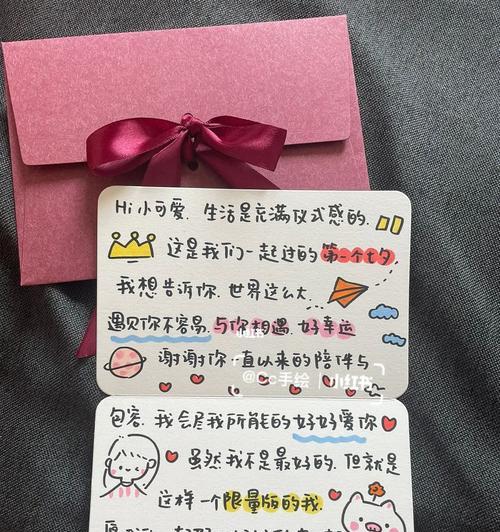 Hi 小可爱. 生活是充满仪式感的.
这是我们一起过的第一个七夕
我想告诉你. 世界这么大.
遇见你不容易. 与你相遇. 好幸运
谢谢你一直以来的陪伴与
@Cc手绘 | 小红书
包容. 我会尽我所能的好好爱你
虽然我不是最好的. 但就是
这样一个限量版的我.